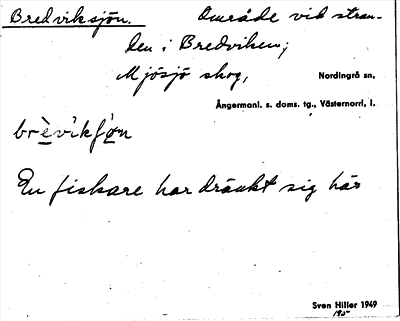 Bredviksjön. Område vid stran-
den i Bredviken;
Mjösjö skog, Nordingrå sn,
Ångermanl. s. doms. tg., Västernorrl. l.
brèvikʃøn
En fiskare har dränkt sig här
Sven Hiller 1949